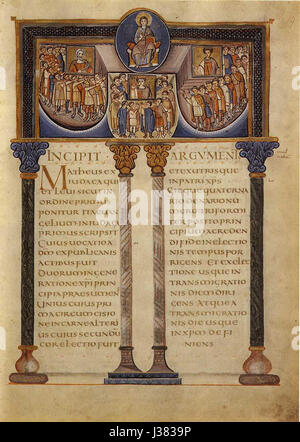 INCIPIT
MATHEUS EX
IUDAEA QUI
ET LEUI SICUT IN
ORDINE PRIMUS
PONITUR ITA EUAN
GELIUM IN IUDAEA
PRIMUS SCRIPSIT
CUIUS UOCATIO AD
DM EX PUBLICANIS
ACTIBUS FUIT
DUORUM IN GENE
RATIONE XPI PRIN
CIPIA PRAESUMENS
UNIUS CUIUS PRI
MA CIRCUMCISIO
IN CARNE ALTERI
US CUIUS SECUNDU
COR ELECTIO FUIT
ARGUMEN
ET EX UTRISQUE
IN PATRIB XPS
SICQUE QUATERNA
RIO DENARIO NU
MERO TRIFORMI
TER POSITO PRIN
CIPIUM A CREDEN
DI FIDE IN ELECTIO
NIS TEMPUS POR
RIGENS ET EX ELEC
TIONE USQUE IN
TRANSMIGRATI
ONIS DIEM DIRI
GENS ATQUE A
TRANSMIGRATI
ONIS DIE USQUE
IN XPM DEFI
NIENS
alamy
Image ID: J3839P
www.alamy.com